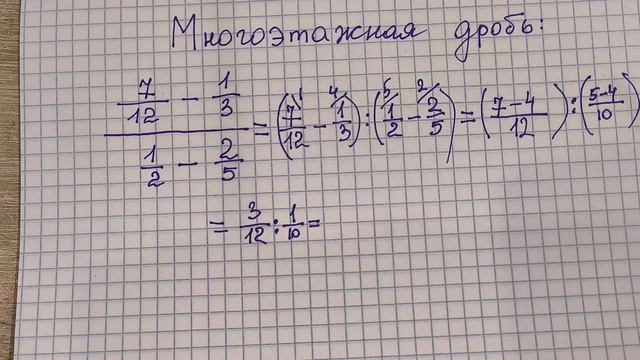 Многоэтажная дробь:
7/12 - 1/3 / 1/2 - 2/5 = (7/12 - 1/3) : (1/2 - 2/5) = (7-4/12) : (5-4/10)
1 4 5 2
= 3/12 : 1/10 =